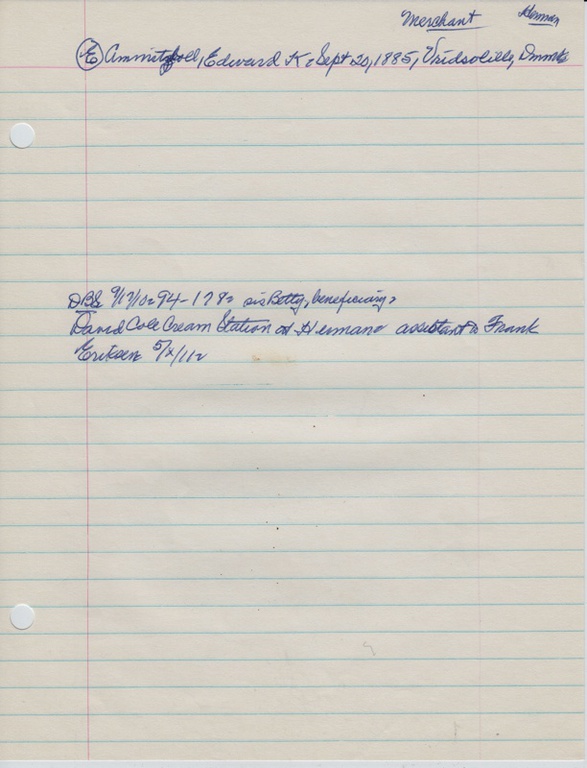 Merchant Herman
(E) Ammitzboll, Edward K. Sept 20, 1885,
DBS 9/17/10 94-178 sis Betty, beneficiary.
David Cole Cream Station at Herman assistant to Frank
Eriksen 5/x/11